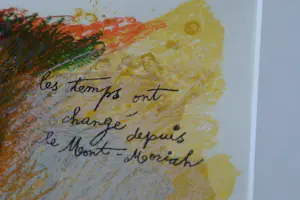 les temps ont
changé depuis
le Mont-Moriah